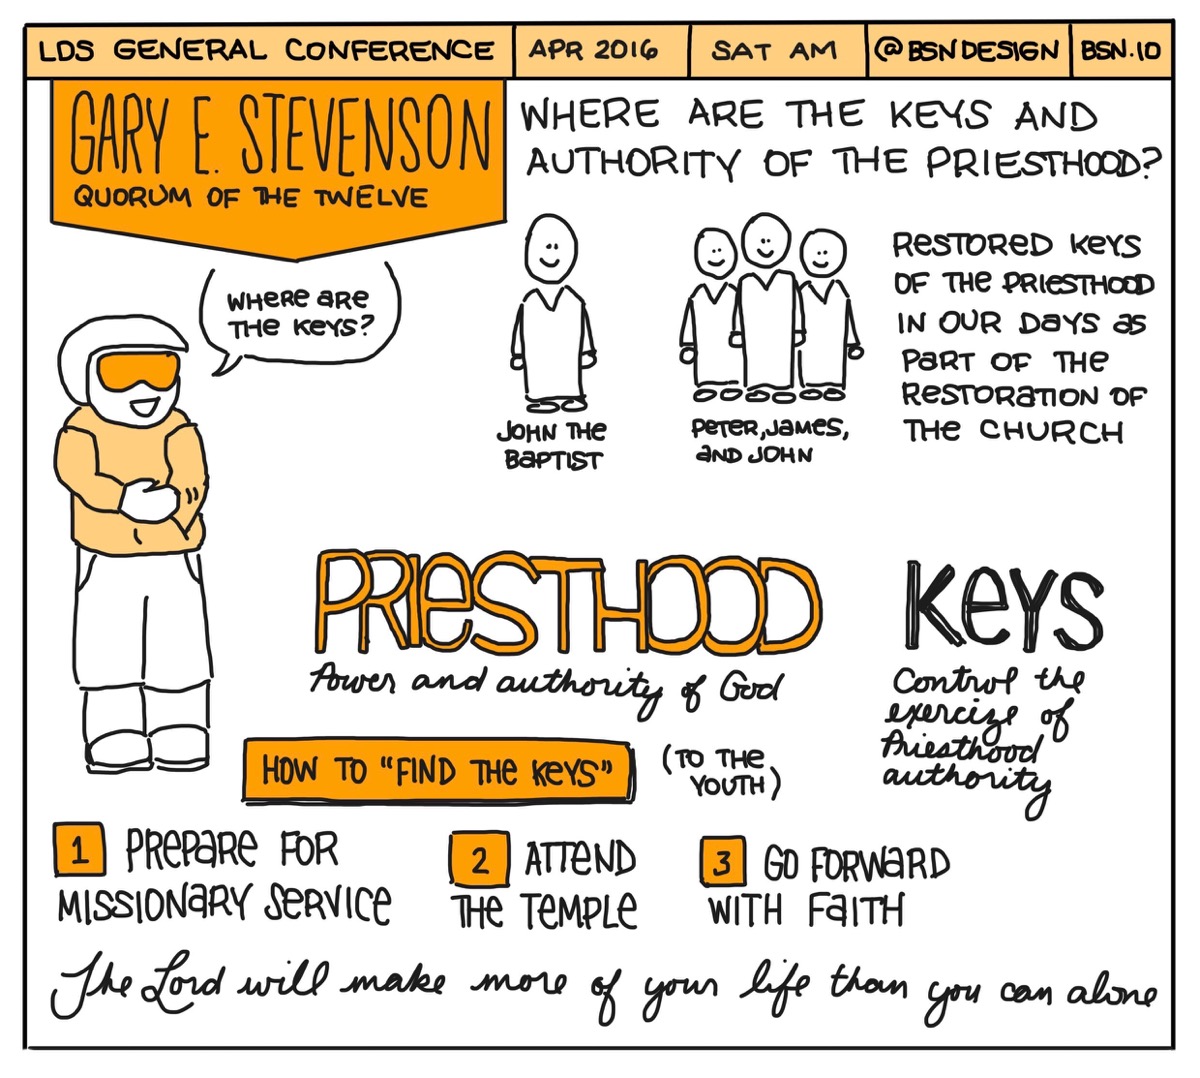 LDS GENERAL CONFERENCE
APR 2016
SAT AM
@BSNDESIGN
BSN.IO
GARY E. STEVENSON
QUORUM OF THE TWELVE
WHERE ARE THE KEYS AND
AUTHORITY OF THE PRIESTHOOD?
WHERE ARE
THE KEYS?
JOHN THE
BAPTIST
PETER, JAMES,
AND JOHN
RESTORED KEYS
OF THE PRIESTHOOD
IN OUR DAYS AS
PART OF THE
RESTORATION OF
THE CHURCH
PRIESTHOOD
Power and authority of God
KEYS
Control the
exercize of
Priesthood
authority
HOW TO "FIND THE KEYS"
(TO THE
YOUTH)
1 PREPARE FOR
MISSIONARY SERVICE
2 ATTEND
THE TEMPLE
3 GO FORWARD
WITH FAITH
The Lord will make more of your life than you can alone